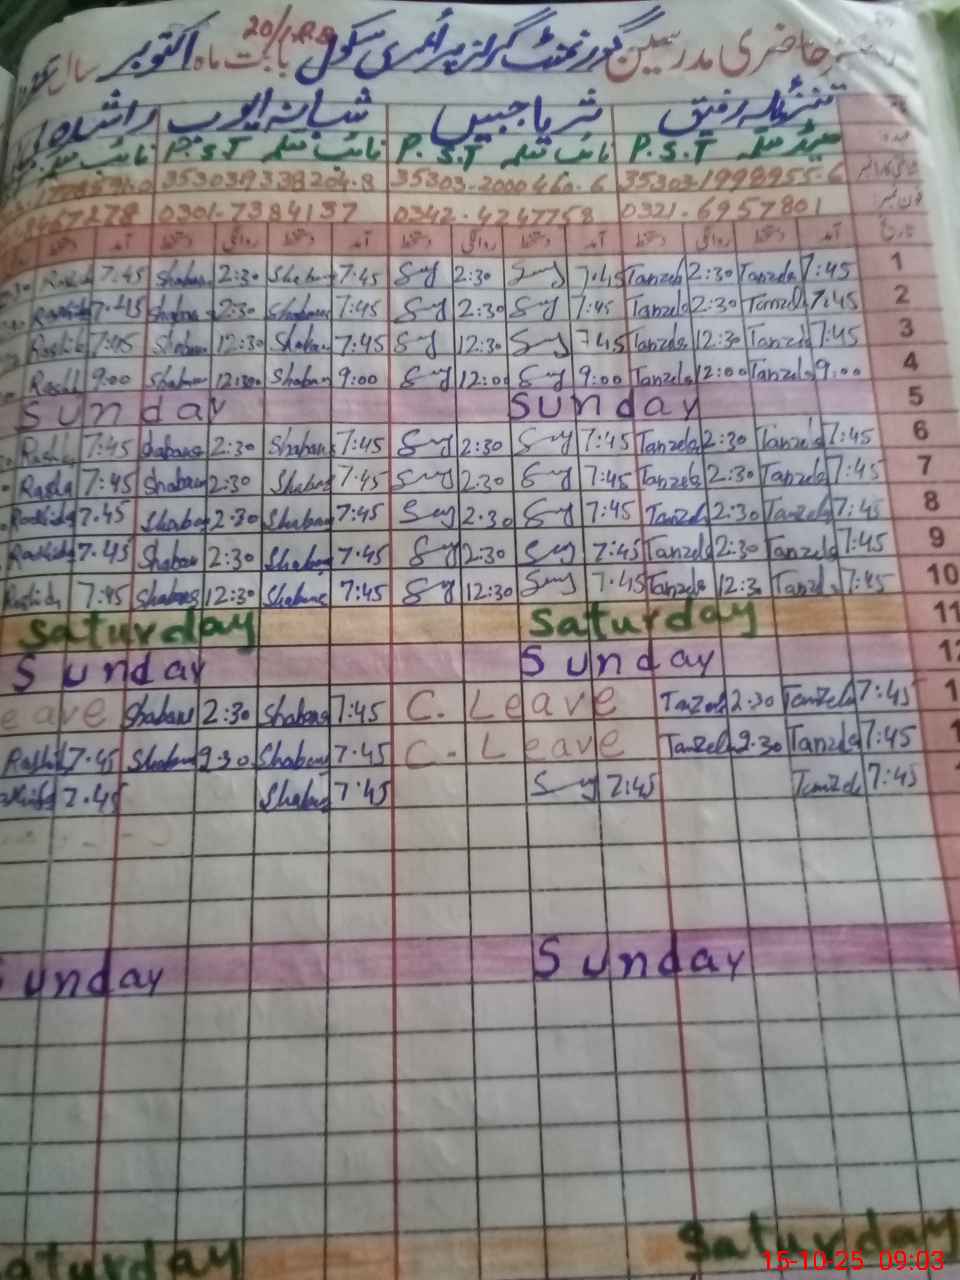 رجسٹر حاضری مدرسین گورنمنٹ گرلز پرائمری سکول 20/1.R.B بابت ماہ اکتوبر سال
تنزیلہ رفیق ثریا جبیں شبانہ ایوب راشدہ
ہیڈ معلمہ P.S.T نائب معلمہ P.S.T نائب معلمہ P.S.T نائب معلمہ
35303-1998955-6 35303-2000460-6 353039338204-8
فون نمبر 0321-6957801 0342-4247758 0301-7384137 8467278
تاریخ آمد دستخط روانگی دستخط آمد دستخط روانگی دستخط آمد دستخط روانگی دستخط آمد دستخط
1 7:45 Tanzela 2:30 Tanzela 7:45 2:30 7:45 Shaban 2:30 Shaban 7:45 Rashid
2 7:45 Tanzela 2:30 Tanzela 7:45 2:30 7:45 Shabana 2:30 Shabana 7:45 Rashid
3 7:45 Tanzela 12:30 Tanzela 7:45 12:30 7:45 Shaban 12:30 Shaban 7:45 Rashid
4 9:00 Tanzela 12:00 Tanzela 9:00 12:00 9:00 Shaban 12:00 Shaban 9:00 Rashid
5 Sunday Sunday
6 7:45 Tanzela 2:30 Tanzela 7:45 2:30 7:45 Shabana 2:30 Shabana 7:45 Rashid
7 7:45 Tanzela 2:30 Tanzela 7:45 2:30 7:45 Shabana 2:30 Shabana 7:45 Rashid
8 7:45 Tanzela 2:30 Tanzela 7:45 2:30 7:45 Shabana 2:30 Shaban 7:45 Rashida
9 7:45 Tanzela 2:30 Tanzela 7:45 2:30 7:45 Shabana 2:30 Shaban 7:45 Rashida
10 7:45 Tanzela 12:3 Tanzela 7:45 12:30 7:45 Shabana 12:30 Shabana 7:45 Rashida
11 Saturday Saturday
12 Sunday Sunday
1 7:45 Tanzela 2:30 Tanzela C. Leave 7:45 Shabana 2:30 Shabana eave
1 7:45 Tanzela 2:30 Tanzela C. Leave 7:45 Shabana 2:30 Shabana 7:45 Rashid
7:45 Tanzela 7:45 7:45 Shabana 7:45
Sunday Sunday
Saturday aturday
15-10-25 09:03